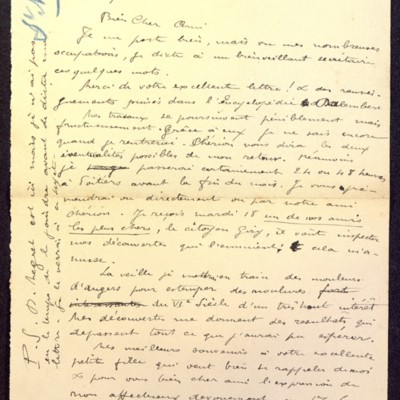 Bien Cher Ami
Je me porte bien, mais vu mes nombreuses
occupations, je dicte à un bienveillant secrétaire
ces quelques mots.
Merci de votre excellente lettre! & des rensei-
gnements puisés dans l'Encyclopédie d'Alembert
Mes travaux se poursuivent péniblement mais
fructueusement. Grâce à eux je ne sais encore
quand je rentrerai. Chérion vous dira les deux
éventualités possibles de mon retour. Néanmoins
je passerai certainement 24 ou 48 heures
à Poitiers avant la fin du mois. Je vous
viendrai ou directement ou par notre ami
Chérion. Je reçois mardi 18 un de vos amis
les plus chers, le citoyen il vient inspecter
mes découvertes qui l'ennuient, & cela m'a-
muse.
La veille je mettrai en train des mouleurs
d'Angers pour estamper des moulures
du VIe Siècle d'un très haut intérêt
Mes découvertes me donnent des résultats qui
dépassent tout ce que j'aurai pu espérer.
Mes meilleurs souvenirs à votre excellente
petite fille qui veut bien se rappeler de moi
& pour vous bien cher ami l'expression de
mon affectueux dévouement
P.S. est ici mais je n'ai pas
eu le temps de le avant de dicter ma
lettre. Je le verrai